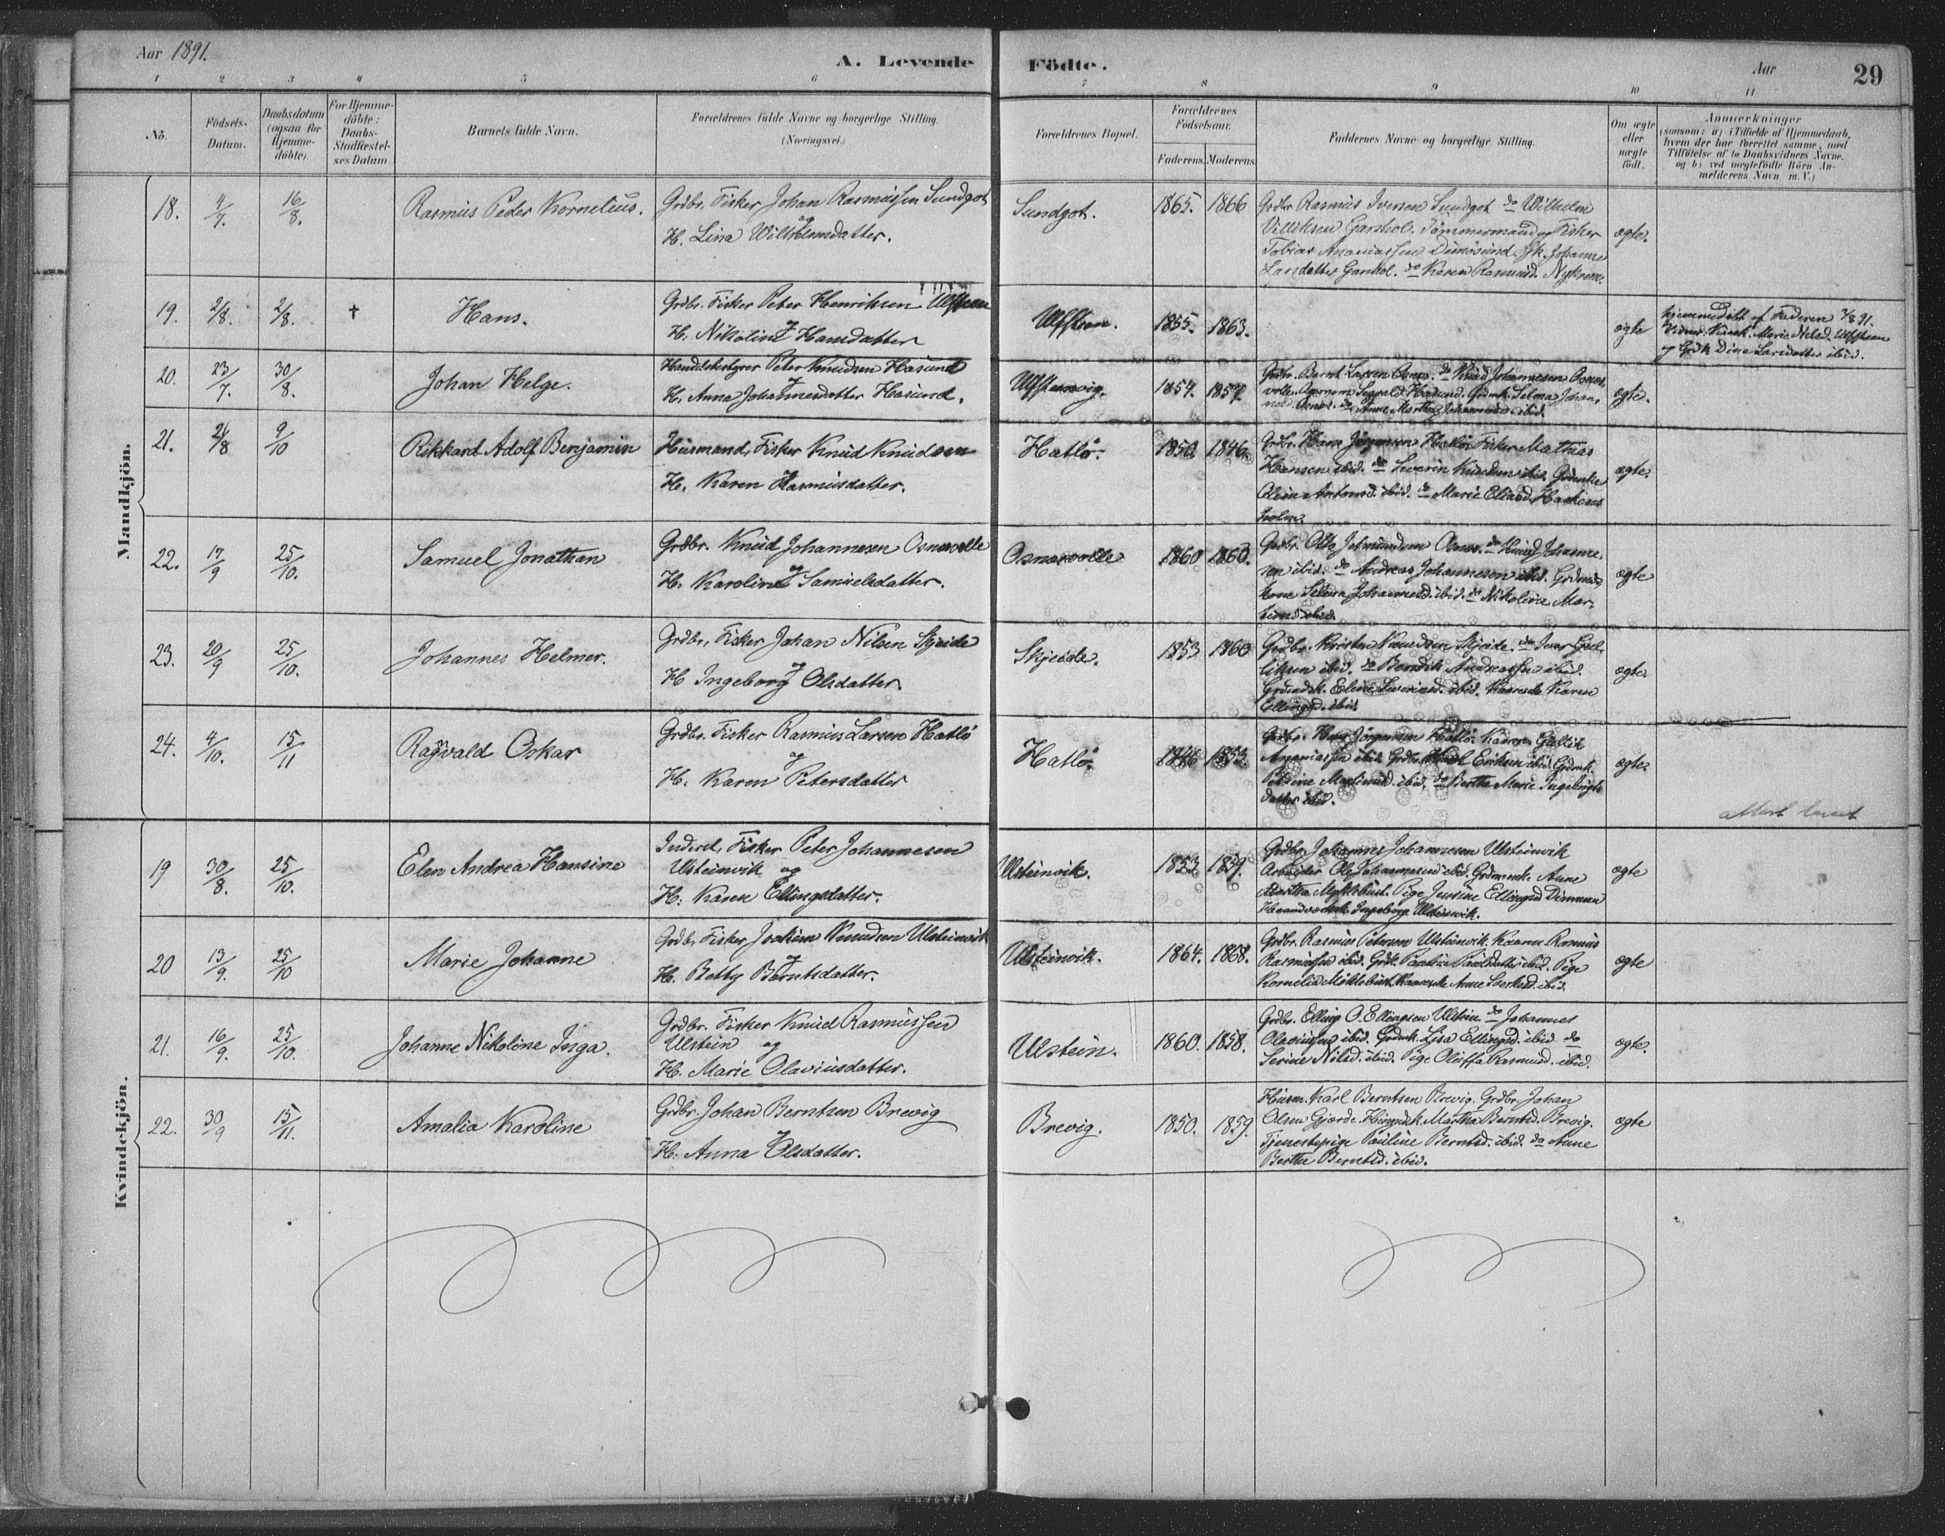 Aar 1891.
A. Levende Födte.
Aar
29
1 2 3 4 5 6 7 8 9 10 11
No.
Födsels-Datum.
Daabsdatum (ogsaa for Hjemme-döbte).
For Hjemme-döbte: Daabs-Stadfæstel-ses Datum.
Barnets fulde Navn.
Forældrenes fulde Navne og borgerlige Stilling. (Næringsvei.)
Forældrenes Bopæl.
Forældrenes Födselsaar.
Faderens. Moderens.
Faddernes Navne og borgerlige Stilling.
Om ægte eller uægte födt.
Anmærkninger
(saasom: a) i Tilfælde af Hjemmedaab,
hvem der har forrettet samme, med
Tilföielse af to Daabsvidners Navne,
og b) ved uægtefödte Börn An-
melderens Navn m. V.)
Mandkjön.
18. 4/7. 16/8. Rasmus Peder Kornelius. Grdbr. Fisker Johan Rasmussen Sundgot
og
H. Lina Wilhelmsdatter.
Sundgot. 1865. 1866
Grdbr. Rasmus Iversen Sundgot do Wilhelm
Garshol. Tømmermand og Fisker
Tobias Ananiassen Dimösund. Johanne
Garshol. do Karen Rasmusd.
ægte.
19. 2/8. 2/8. † Hans. Grdbr. Fisker Peter Henriksen Ulfsteen
H. Nikoline Hansdatter
Ulfsteen. 1855. 1863. ægte
hjemmedöbt af Faderen 2/8 91.
Marie Nilsd. Ulfsteen
og Dina Larsdatter ibid.
20. 23/7. 30/8. Johan Helge. Handelsbestyrer Peter Knudsen Hasund
og
H. Anna Johannesdatter Hasund.
Ulfstenvig. 1854. 1857.
Grdbr. Bernt Larsen Osnes. do Knud Johannesen Osnes-
volle. Sigvald Hasund. Grdmk. Selma Johan-
Osnes. do Anne Martha Johannesd. ibid.
ægte.
21. 8 9/10 Rikkard Adolf Benjamin Husmand, Fisker Knud Knudsen
H. Karen Rasmusdatter.
Hatlö. 1850. 1846.
Grdbr. Hans Jörgensen Hatlö. Fisker Mathias
Hansen ibid. do Severin Knudsen ibid.
Oline Antonsd. ibid. do Marie Eliasd. Haakons
holm.
ægte.
22. 17/9 25/10. Samuel Jonathan Grdbr. Knud Johannesen Osnesvolle
og
H. Karoline Samuelsdatter.
Osnesvolle 1860 1860.
Grdbr. Otto Osnes. do Knud Johanne-
sen ibid. do Andreas Johannesen ibid. Grdmds
kone Selma Johannesd. ibid. do Nikoline Mar-
ibid.
ægte
23. 20/9 25/10. Johannes Helmer. Grdbr. Fisker Johan Nilsen Skjeide
og
H. Ingeborg Olsdatter.
Skjeide. 1853 1860
Grdbr. Kristen Knudsen Skjeide. do Iver
ibid. do Bendik Andreassen ibid.
Grdmdsk. Eline Severinsd. ibid. Karen
Ellingsd. ibid.
ægte.
24. 4/10. 15/11 Ragvald Oskar Grdbr. Fisker Rasmus Larsen Hatlö
og
H. Karen Petersdatter
Hatlö. 1846 1853.
Grdbr. Hans Jörgensen Hatlö.
Ananiassen ibid. Grdbr. Karl Eriksen ibid. Grdmk.
Petrine Martinusd. ibid. do Berthe Marie Ingebrigts
datter ibid.
ægte.
attest
Kvindekjön.
19 30/8. 25/10. Elen Andrea Hansine Inderst, Fisker Peter Johannesen
Ulsteinvik og
H. Karen Ellingsdatter.
Ulsteinvik. 1853. 1859.
Grdbr. Johannes Johannesen Ulsteinvik
Arbeider Ole Johannesen ibid. Grdmk. Anne
Martha Myklebust. Pige Jensine Ellingsd. Dimmen
Ingeborg Ulsteinvik.
ægte
20 13/9. 25/10 Marie Johanne Grdb. Fisker Joakim Knudsen Ulsteinvik
og
H. Betty Berntsdatter.
Ulsteinvik. 1864. 1868.
Grdbr. Rasmus Petersen Ulsteinvik. Kaarm. Rasmus
Rasmussen ibid. Grdk. Pauline Paulsdatter ibid. Pige
Kornelia Myklebust. Anne ibid.
ægte
21. 16/9. 25/10. Johanne Nikoline Inga. Grdbr. Fisker Knud Rasmussen
Ulstein og
H. Marie Olaviusdatter.
Ulstein. 1860. 1858.
Grdbr. Elling O. Ellingsen Ulstein do Johannes
Olaviussen ibid. Grdmk. Lisa Ellingsd. ibid do
Serine Nilsd. ibid. Pige Oluffa Rasmusd. ibid.
ægte.
22. 30/9 15/11. Amalia Karoline Grdbr. Johan Berntsen Brevig
og
H. Anna Olsdatter.
Brevig. 1850. 1859.
Husm. Karl Berntsen Brevig. Grdbr. Johan
Olsen Gjerde. Martha Berntsd. Brevig.
Tjenestepige Pauline Berntsd. ibid. do Anne
Berthe Berntsd. ibid.
ægte